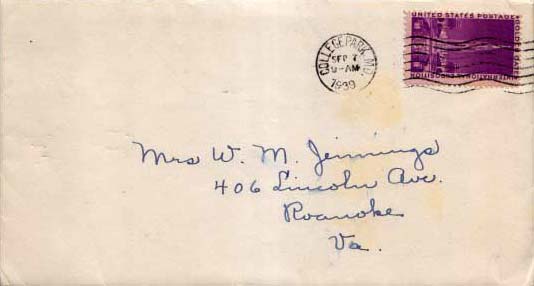 COLLEGE PARK, MD.
SEP 7
9-AM
1939
UNITED STATES POSTAGE
GOLDEN GATE
INTERNATIONAL EXPOSITION
Mrs W. M. Jennings
406 Lincoln Ave.
Roanoke
Va.